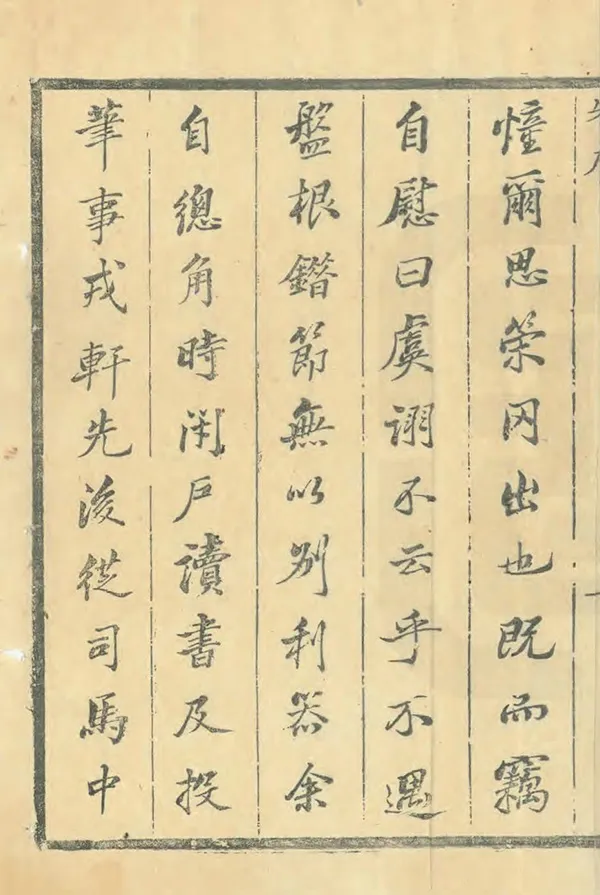 憧爾思策罔出也既而竊
自慰曰虞詡不云乎不遇
盤根錯節無以別利器余
自總角時閉戶讀書及投
筆事戎軒先後從司馬中